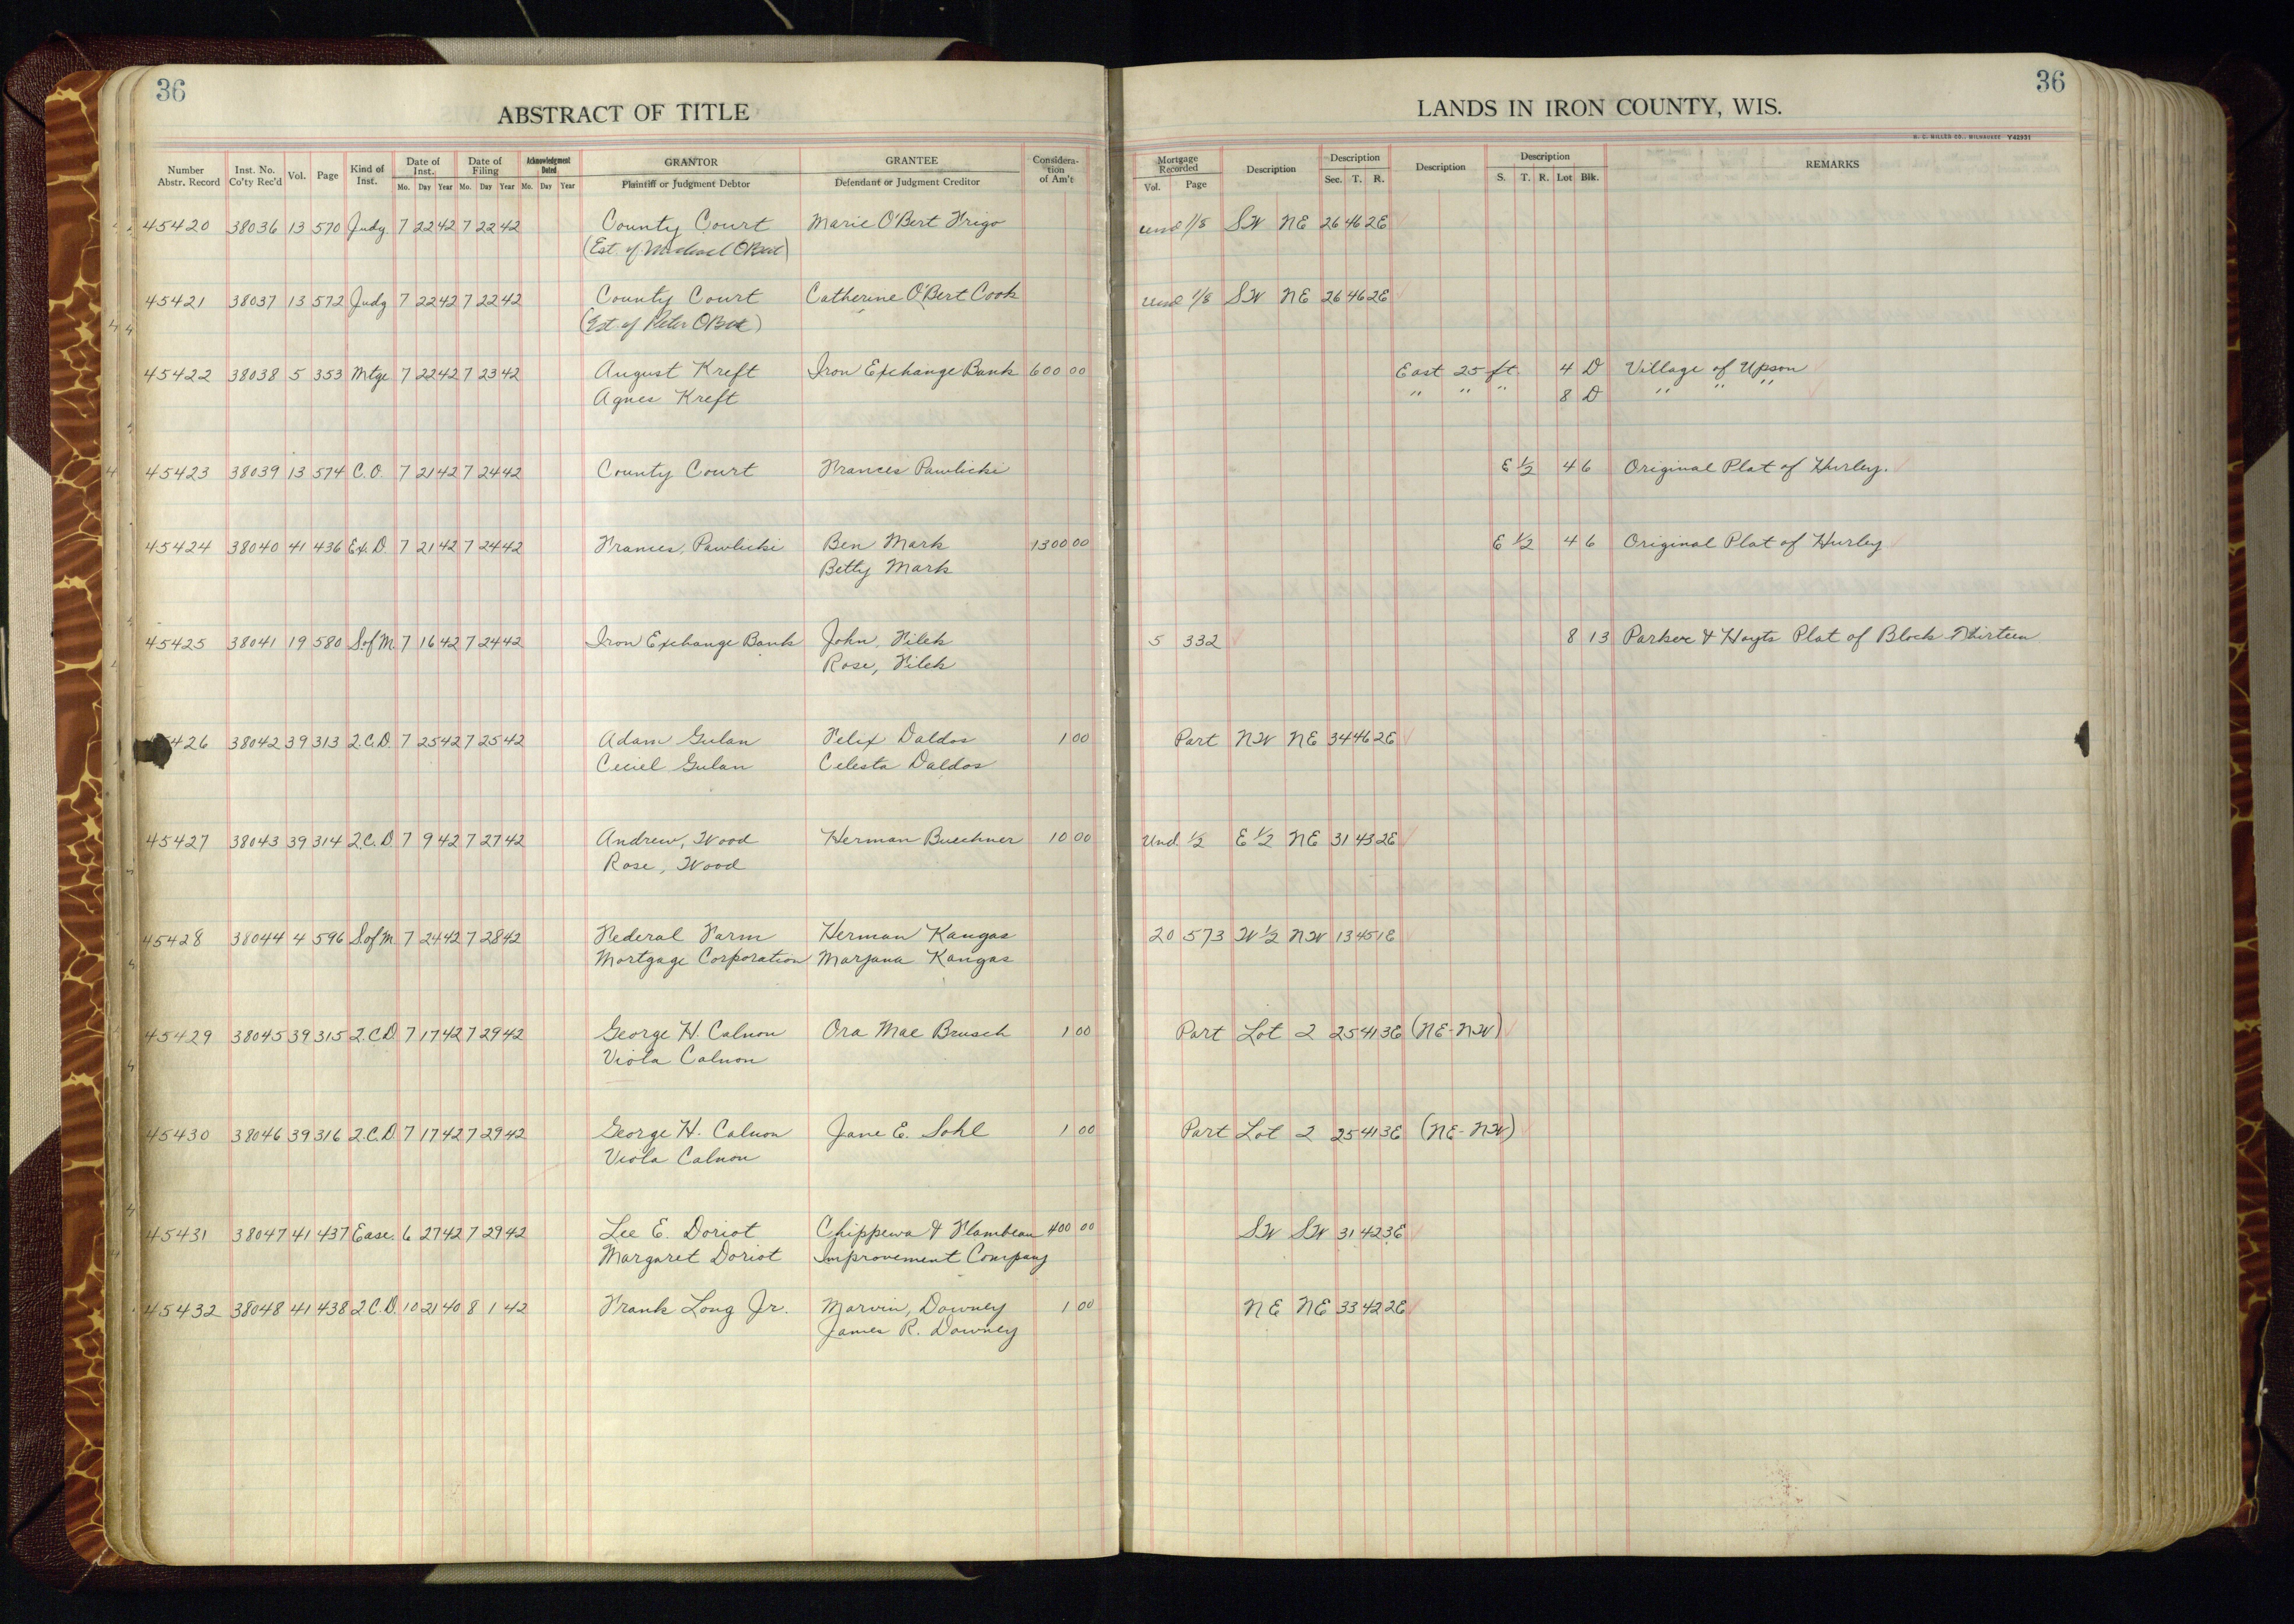 36
ABSTRACT OF TITLE
Number Abstr. Record Inst. No. Co'ty Rec'd Vol. Page Kind of Inst. Date of Inst. Mo. Day Year Date of Filing Mo. Day Year Acknowledgment Dated Mo. Day Year GRANTOR Plaintiff or Judgment Debtor GRANTEE Defendant or Judgment Creditor Consideration of Am't
36
LANDS IN IRON COUNTY, WIS.
H. C. MILLER CO., MILWAUKEE Y42931
Mortgage Recorded Vol. Page Description Description Sec. T. R. Description Description S. T. R. Lot Blk. REMARKS
45420 38036 13 570 Judg 7 22 42 7 22 42 County Court Marie O'Bert Frigo und 1/8 SW NE 26 46 2E
(Est. of Michael O'Bert)
45421 38037 13 572 Judg 7 22 42 7 22 42 County Court Catherine O'Bert Cook und 1/8 SW NE 26 46 2E
(Est. of Peter O'Bert)
45422 38038 5 353 Mtge 7 22 42 7 23 42 August Kreft Iron Exchange Bank 600 00 East 25 ft. 4 D Village of Upson
Agnes Kreft " " " 8 D " " "
45423 38039 13 574 C.O. 7 21 42 7 24 42 County Court Frances Pawlicki E 1/2 4 6 Original Plat of Hurley.
45424 38040 41 436 Ex. D. 7 21 42 7 24 42 Frances, Pawlicki Ben Mark 1300 00 E 1/2 4 6 Original Plat of Hurley
Betty Mark
45425 38041 19 580 S.of M. 7 16 42 7 24 42 Iron Exchange Bank John, Filek 5 332 8 13 Parker & Hoyts Plat of Block Thirteen
Rose, Filek
5426 38042 39 313 2.C.D. 7 25 42 7 25 42 Adam Gulan Felix Daldos 1 00 Part NW NE 34 46 2E
Ceciel Gulan Celesta Daldos
45427 38043 39 314 2.C.D 7 9 42 7 27 42 Andrew, Wood Herman Buechner 10 00 Und. 1/2 E 1/2 NE 31 43 2E
Rose, Wood
45428 38044 4 596 S.of M. 7 24 42 7 28 42 Federal Farm Herman Kangas 20 573 W 1/2 NW 13 45 1E
Mortgage Corporation Marjana Kangas
45429 38045 39 315 2.C.D 7 17 42 7 29 42 George H. Calnon Ora Mae Brusch 1 00 Part Lot 2 25 41 3E (NE-NW)
Viola Calnon
45430 38046 39 316 2.C.D. 7 17 42 7 29 42 George H. Calnon Jane E. Sohl 1 00 Part Lot 2 25 41 3E (NE-NW)
Viola Calnon
45431 38047 41 437 Ease. 6 27 42 7 29 42 Lee E. Doriot Chippewa & Flambeau 400 00 SW SW 31 42 3E
Margaret Doriot Improvement Company
45432 38048 41 438 2.C.D. 10 21 40 8 1 42 Frank Long Jr. Marvin, Downey 1 00 NE NE 33 42 2E
James R. Downey